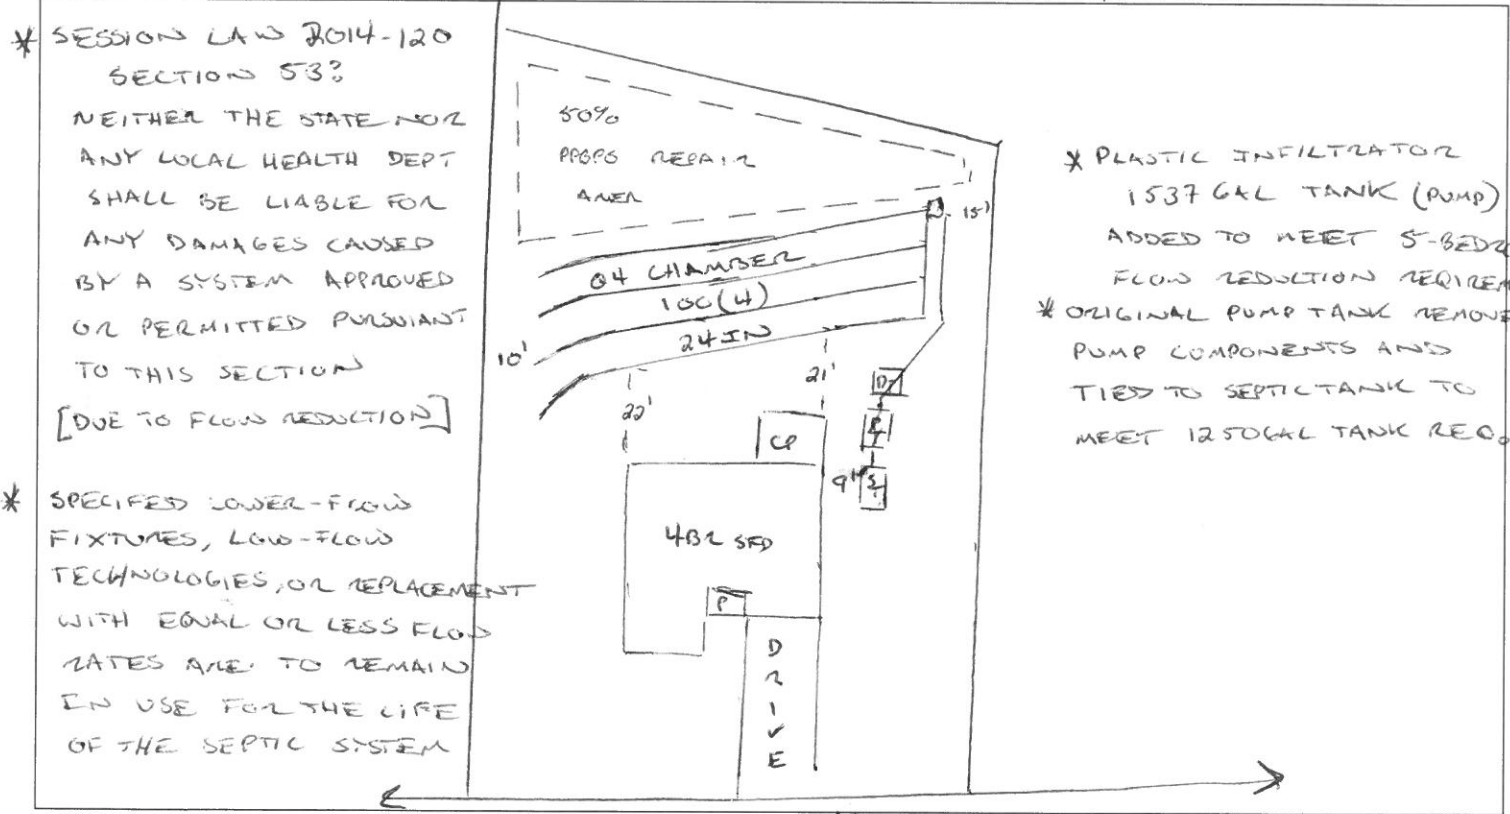 * SESSION LAW 2014-120
SECTION 53:
NEITHER THE STATE NOR
ANY LOCAL HEALTH DEPT
SHALL BE LIABLE FOR
ANY DAMAGES CAUSED
BY A SYSTEM APPROVED
OR PERMITTED PURSUIANT
TO THIS SECTION
[DUE TO FLOW REDUCTION]
* SPECIFED LOWER-FLOW
FIXTURES, LOW-FLOW
TECHNOLOGIES, OR REPLACEMENT
WITH EQUAL OR LESS FLOW
RATES ARE TO REMAIN
IN USE FOR THE LIFE
OF THE SEPTIC SYSTEM
50%
PPBPS REPAIR
AREA
15'
Q4 CHAMBER
100(4)
24 IN
10'
22'
21'
CP
D
PT
ST
9'
4BR SFD
P
DRIVE
* PLASTIC INFILTRATOR
1537 GAL TANK (PUMP)
ADDED TO MEET 5-BEDR
FLOW REDUCTION REQIREM
* ORIGINAL PUMP TANK REMOVE
PUMP COMPONENTS AND
TIED TO SEPTIC TANK TO
MEET 1250GAL TANK REQ.